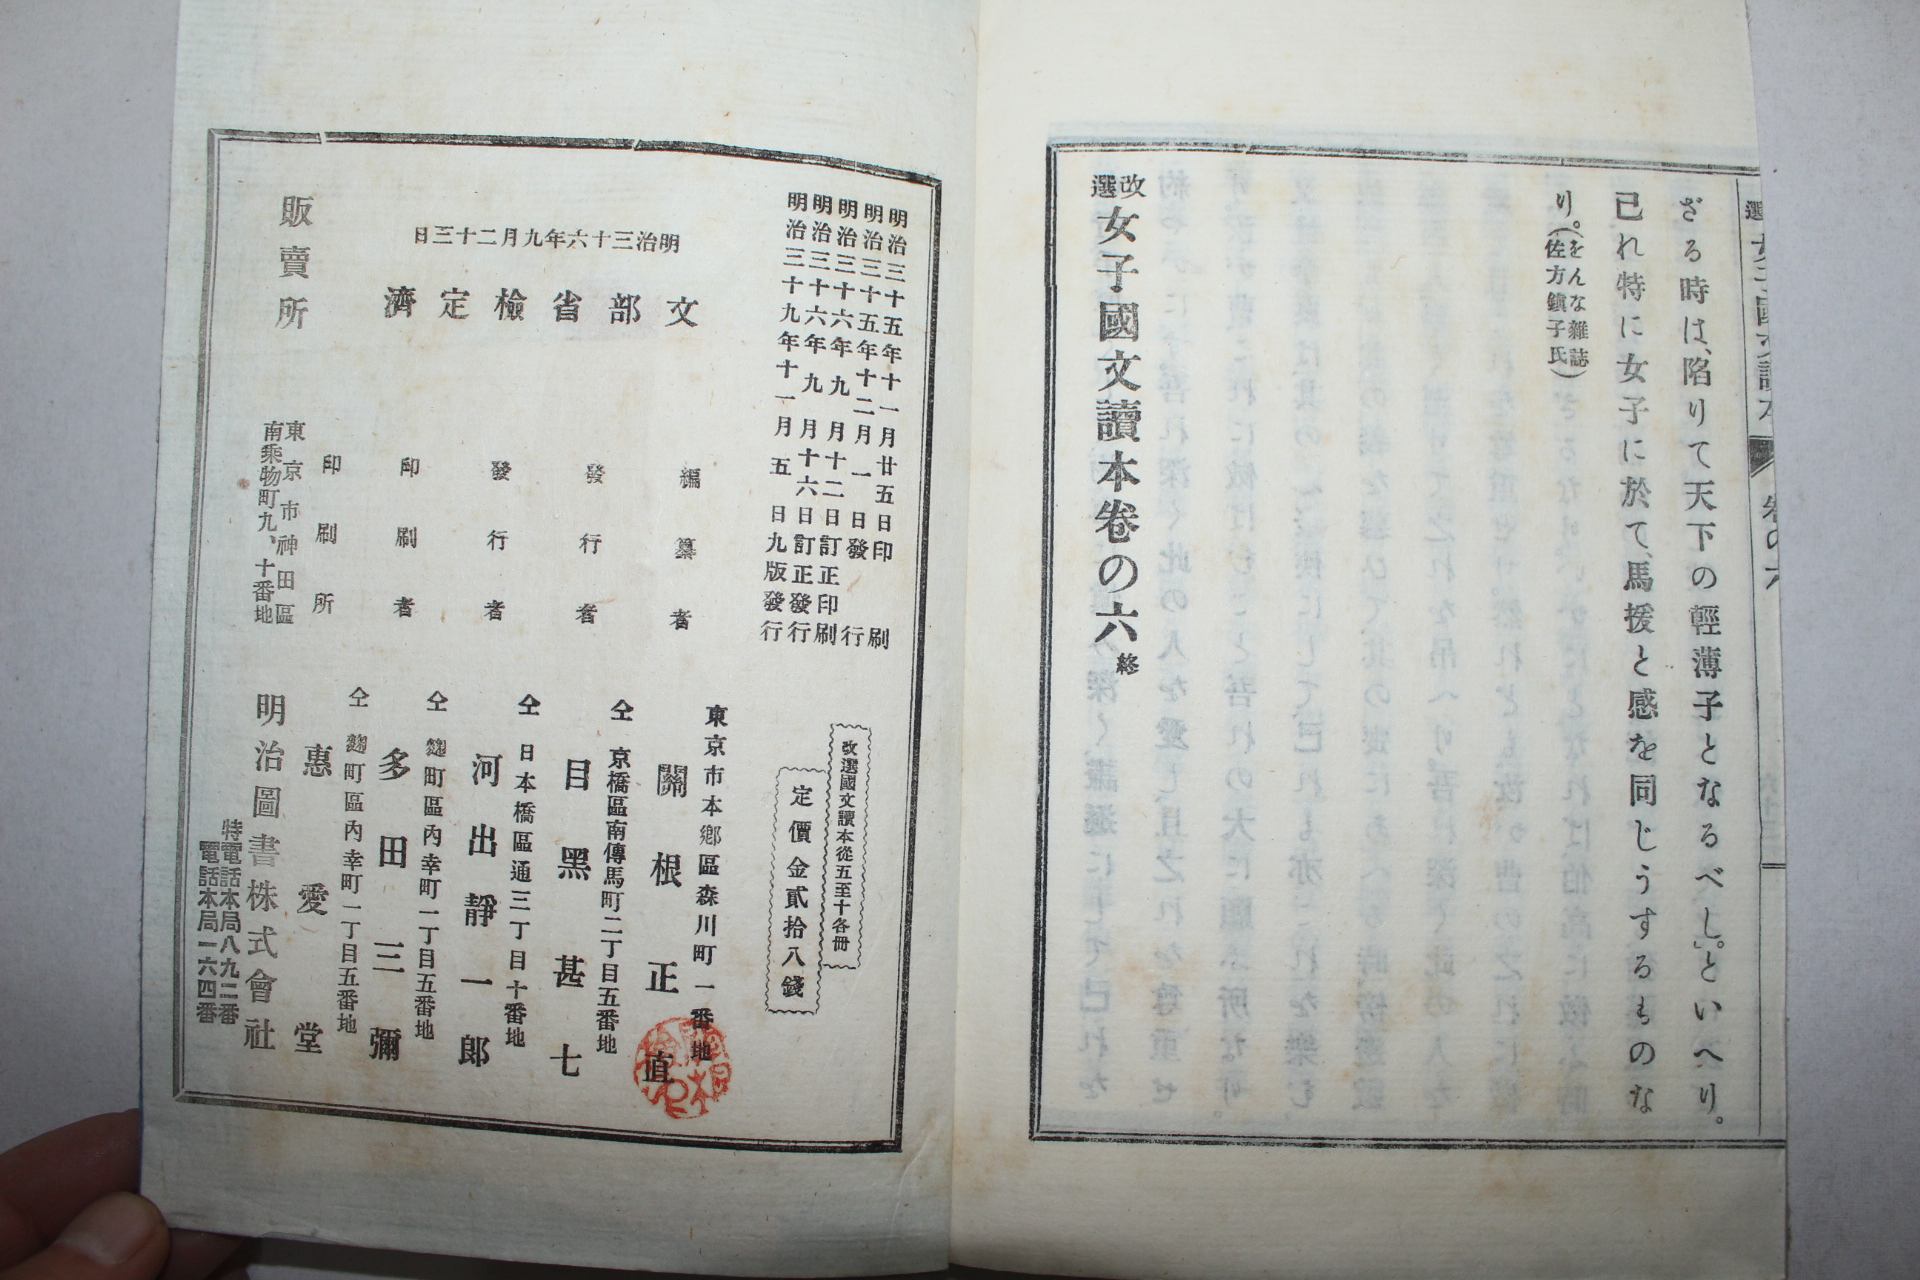 ざる時は、陷りて天下の輕薄子となるべし。」といへり。
己れ特に女子に於て、馬援と感を同じうするものな
り。(をんな雜誌)
(佐方鎭子氏)
改選
女子國文讀本卷の六 終
明治三十五年十一月廿五日印刷
明治三十五年十二月一日發行
明治三十六年九月十二日訂正印刷
明治三十六年九月十六日訂正發行
明治三十九年十一月五日九版發行
改選國文讀本從五至十各冊
定價金貳拾八錢
明治三十六年九月二十三日
文部省檢定濟
東京市本鄕區森川町一番地
編纂者 關根正直
仝 京橋區南傳馬町二丁目五番地
發行者 目黑甚七
仝 日本橋區通三丁目十番地
發行者 河出靜一郎
仝 麴町區內幸町一丁目五番地
印刷者 多田三彌
仝 麴町區內幸町一丁目五番地
印刷所 惠愛堂
販賣所
東京市神田區
南乘物町九、十番地
明治圖書株式會社
特電話本局八九二番
電話本局一六四番